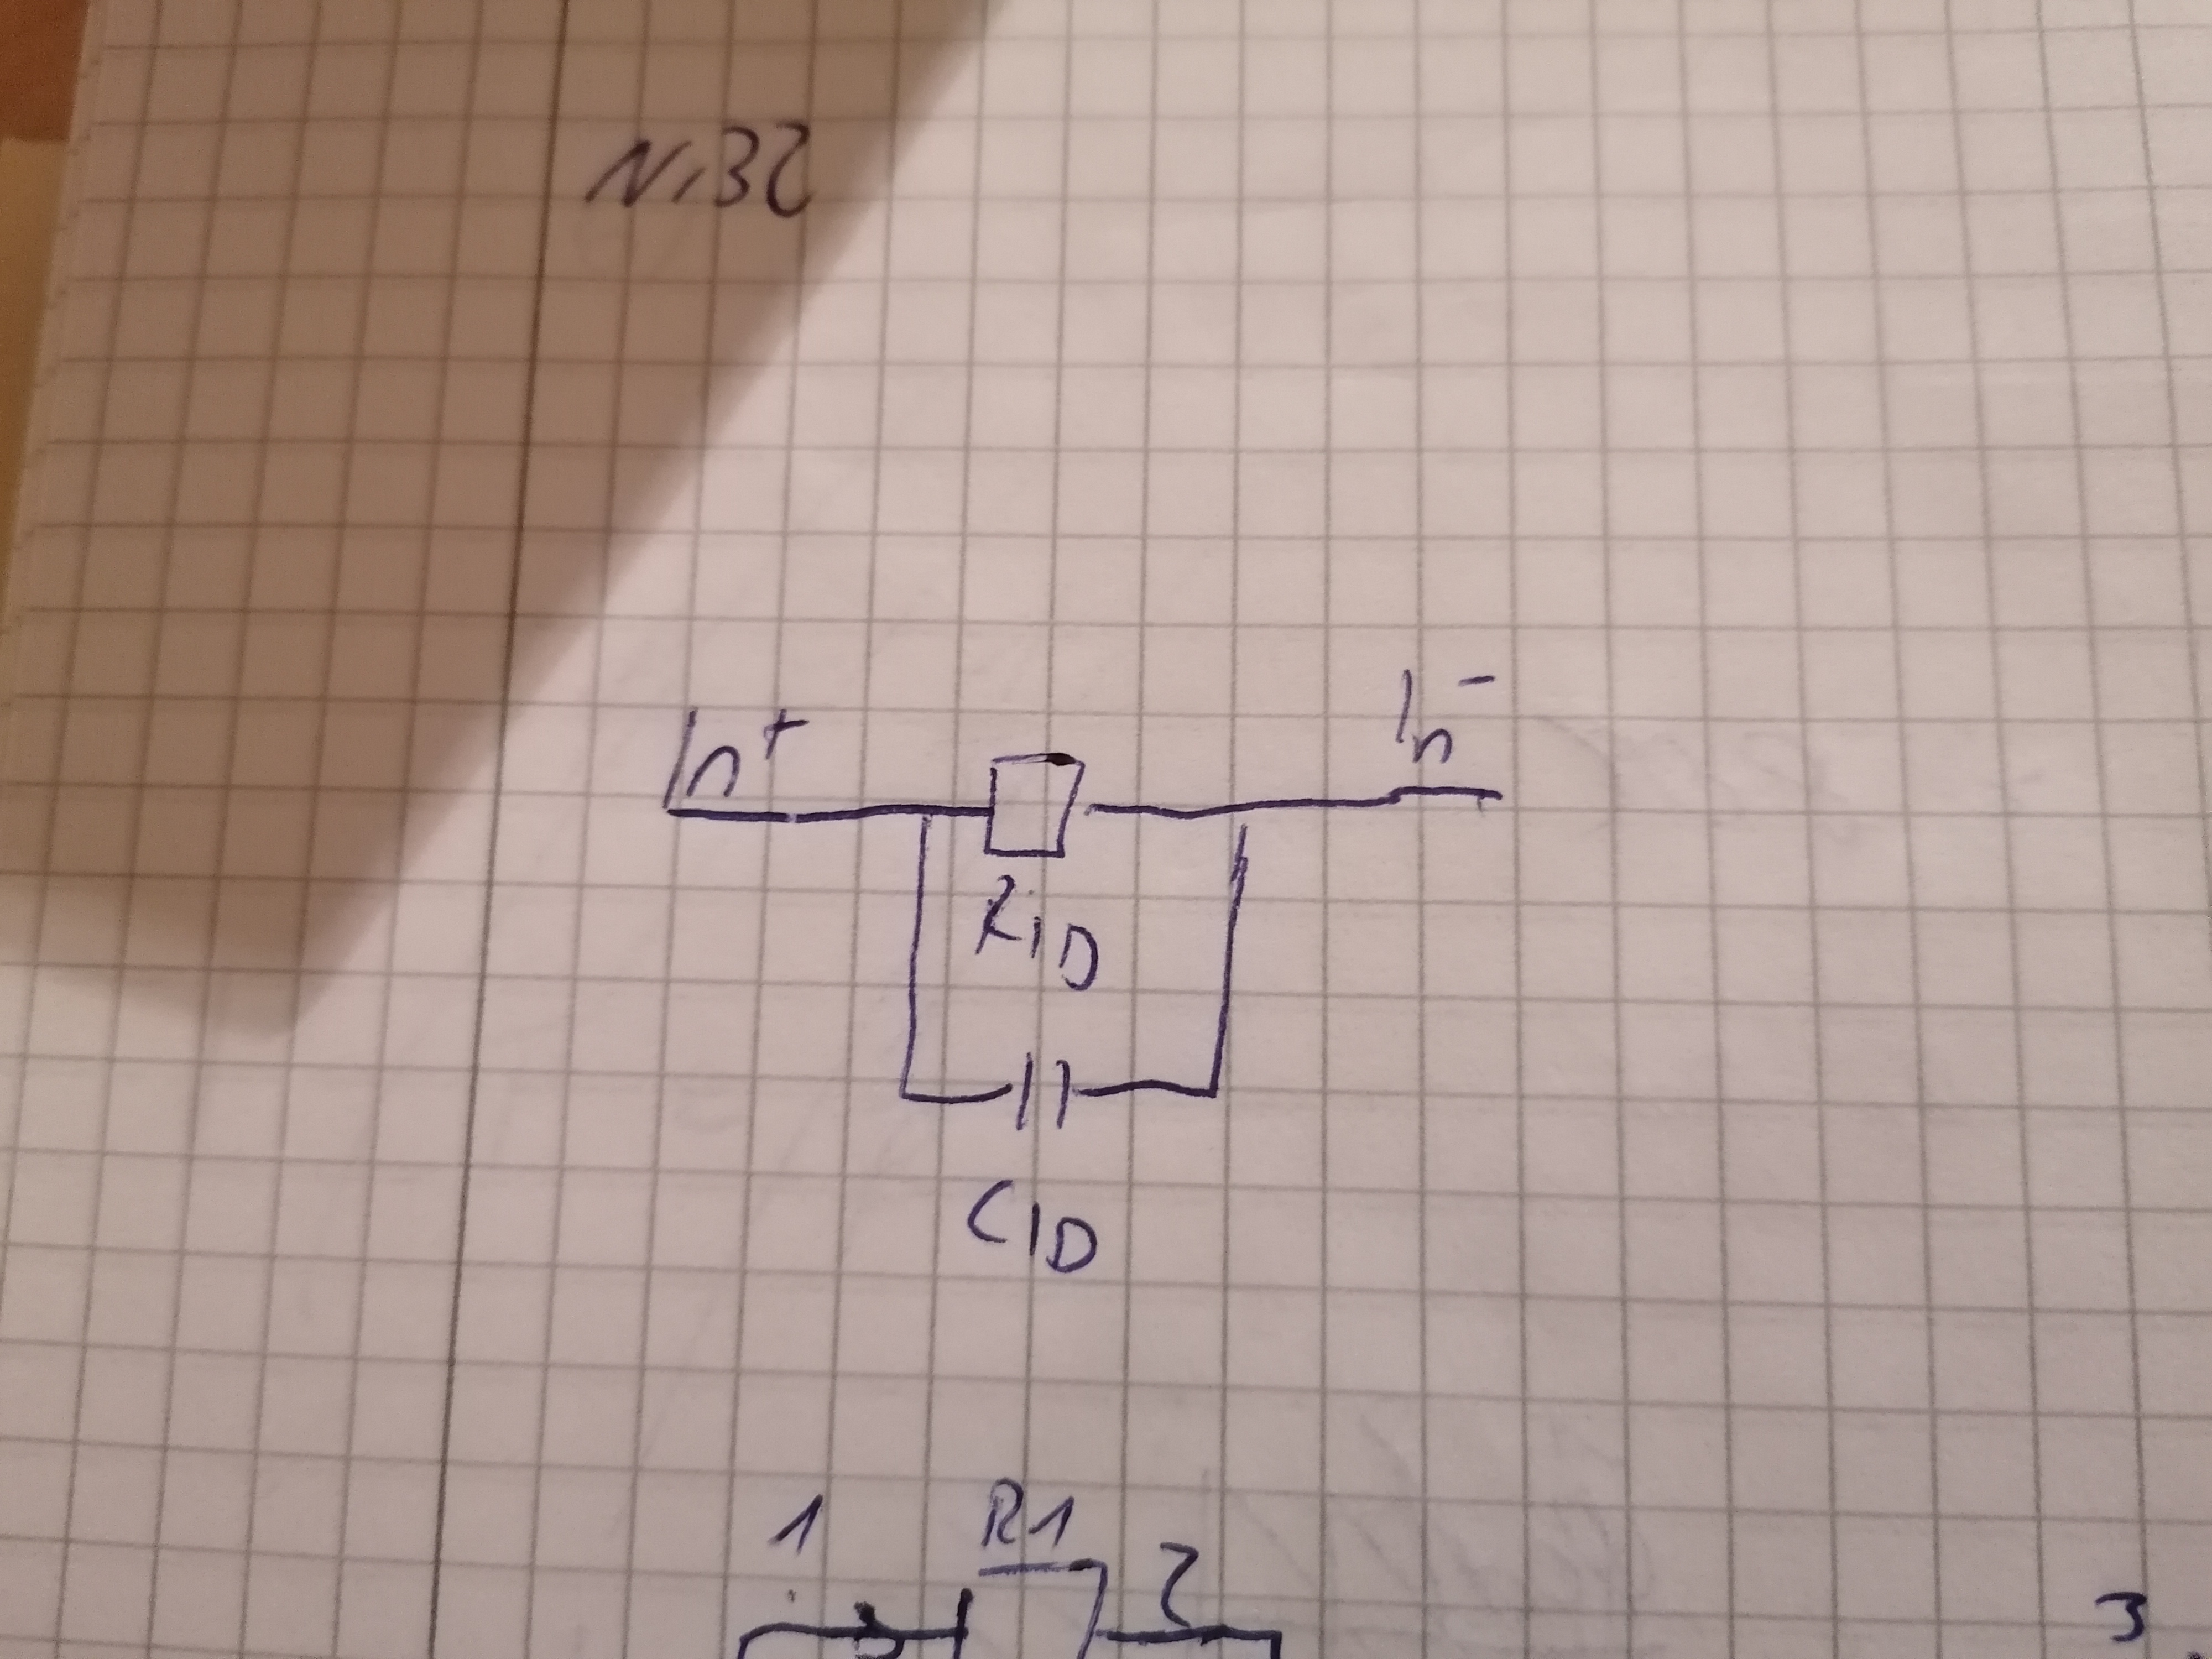 Nr32
In+ In-
RID
CID
1 R1 2
3